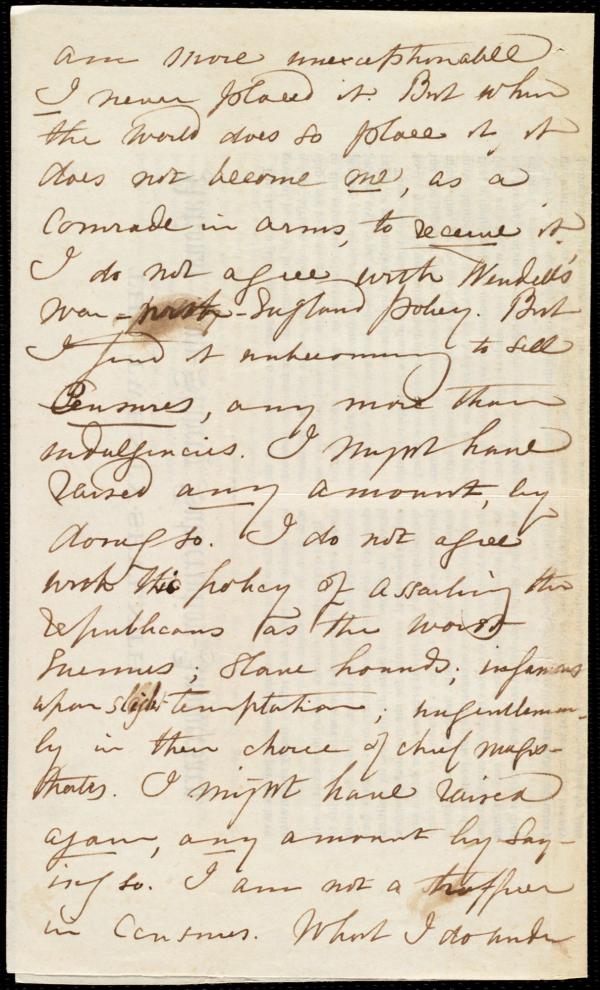 am more unexceptionable
I never placed it. But when
the world does so place it, it
does not become me, as a
Comrade in arms, to receive it.
I do not agree with Wendell's
war-party-England policy. But
I find it unbecoming to sell
Censures, any more than
indulgencies. I might have
raised any amount, by
doing so. I do not agree
with the policy of assailing the
republicans as the worst
Enemies; Slave hounds; infamous
upon slight temptation; ungentleman-
ly in their choice of chief magis-
trates. I might have raised
again, any amount by say-
ing so. I am not a trafficer
in Censures. What I do under